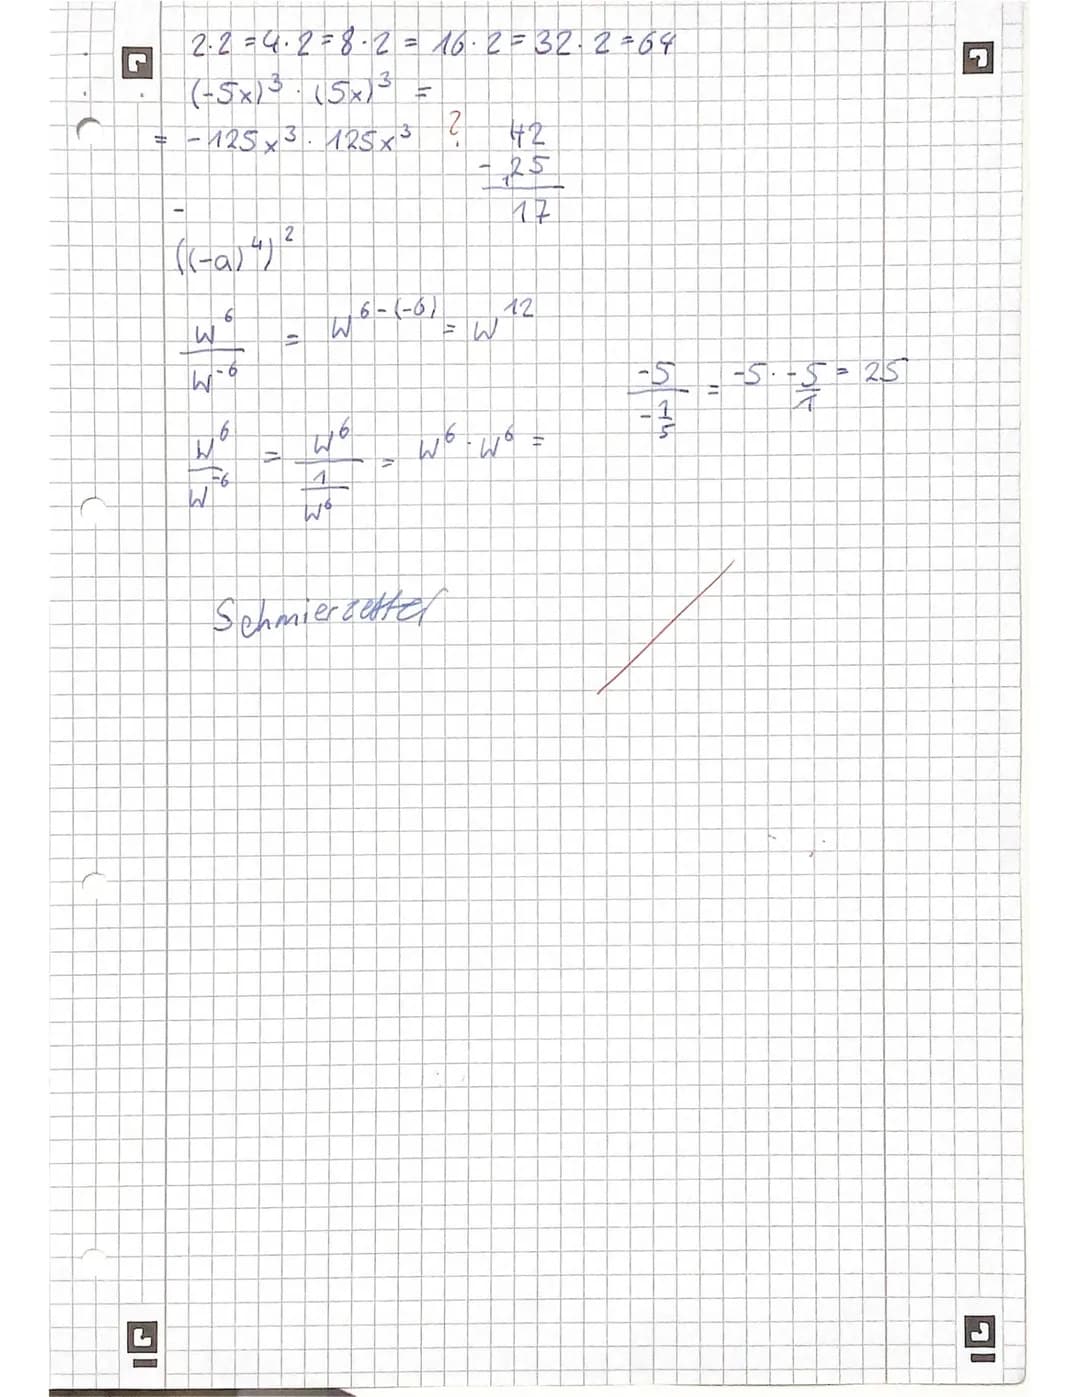 2·2=4·2=8·2=16·2=32·2=64
(-5x)³·(5x)³ =
= -125x³·125x³ ?
42
-25
1
17
-
((-a)⁴)²
w⁶/w⁻⁶ = w⁶⁻⁽⁻⁶⁾ = w¹²
-5/-1/5 = -5·-5/1 = 25
w⁶/w⁻⁶ = w⁶/1/w⁶ = w⁶·w⁶ =
Schmierzettel